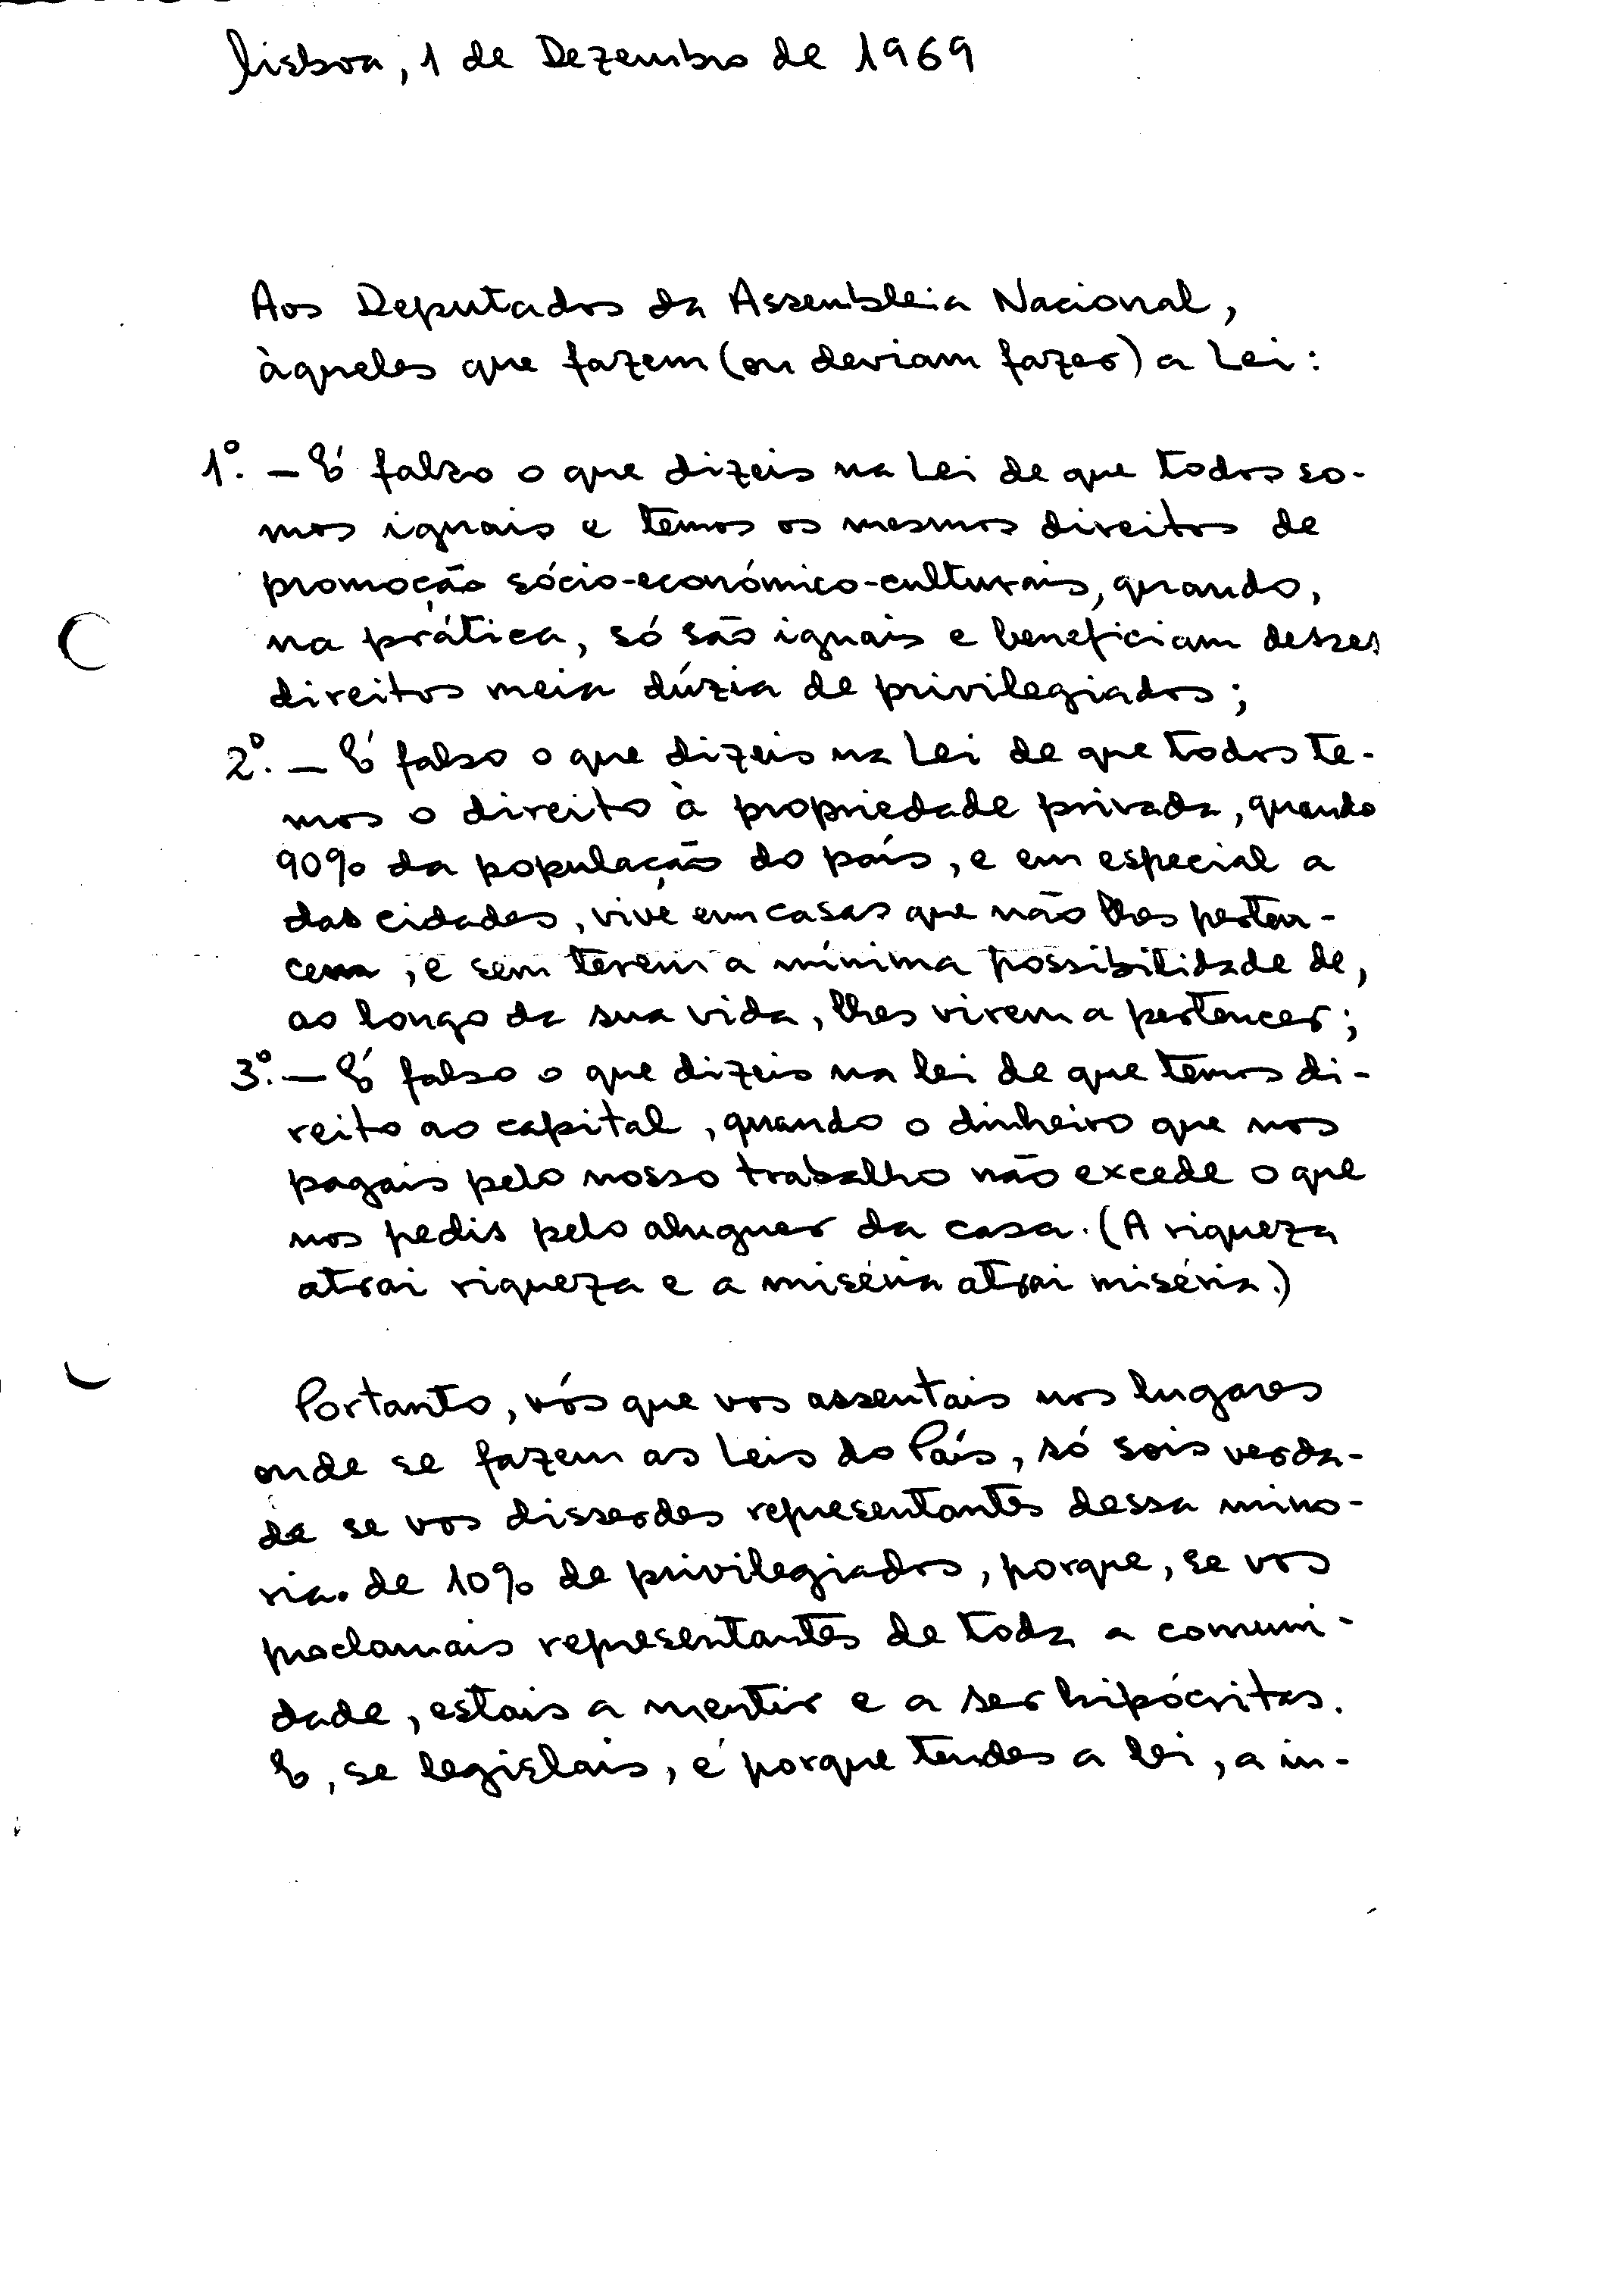 Lisboa, 1 de Dezembro de 1969
Aos Deputados da Assembleia Nacional,
àqueles que fazem (ou deviam fazer) a Lei:
1º. – É falso o que dizeis na Lei de que todos so-
mos iguais e temos os mesmos direitos de
promoção sócio-económico-culturais, quando,
na prática, só são iguais e beneficiam desses
direitos meia dúzia de privilegiados;
2º. – É falso o que dizeis na Lei de que todos te-
mos o direito à propriedade privada, quando
90% da população do país, e em especial a
das cidades, vive em casas que não lhes perten-
cem, e sem terem a mínima possibilidade de,
ao longo da sua vida, lhes virem a pertencer;
3º. – É falso o que dizeis na lei de que temos di-
reito ao capital, quando o dinheiro que nos
pagais pelo nosso trabalho não excede o que
nos pedis pelo aluguer da casa. (A riqueza
atrai riqueza e a miséria atrai miséria.)
Portanto, vós que vos assentais nos lugares
onde se fazem as Leis do País, só sois verda-
de se vos disserdes representantes dessa mino-
ria de 10% de privilegiados, porque, se vos
proclamais representantes de toda a comuni-
dade, estais a mentir e a ser hipócritas.
E, se legislais, é porque tendes a lei, a in-